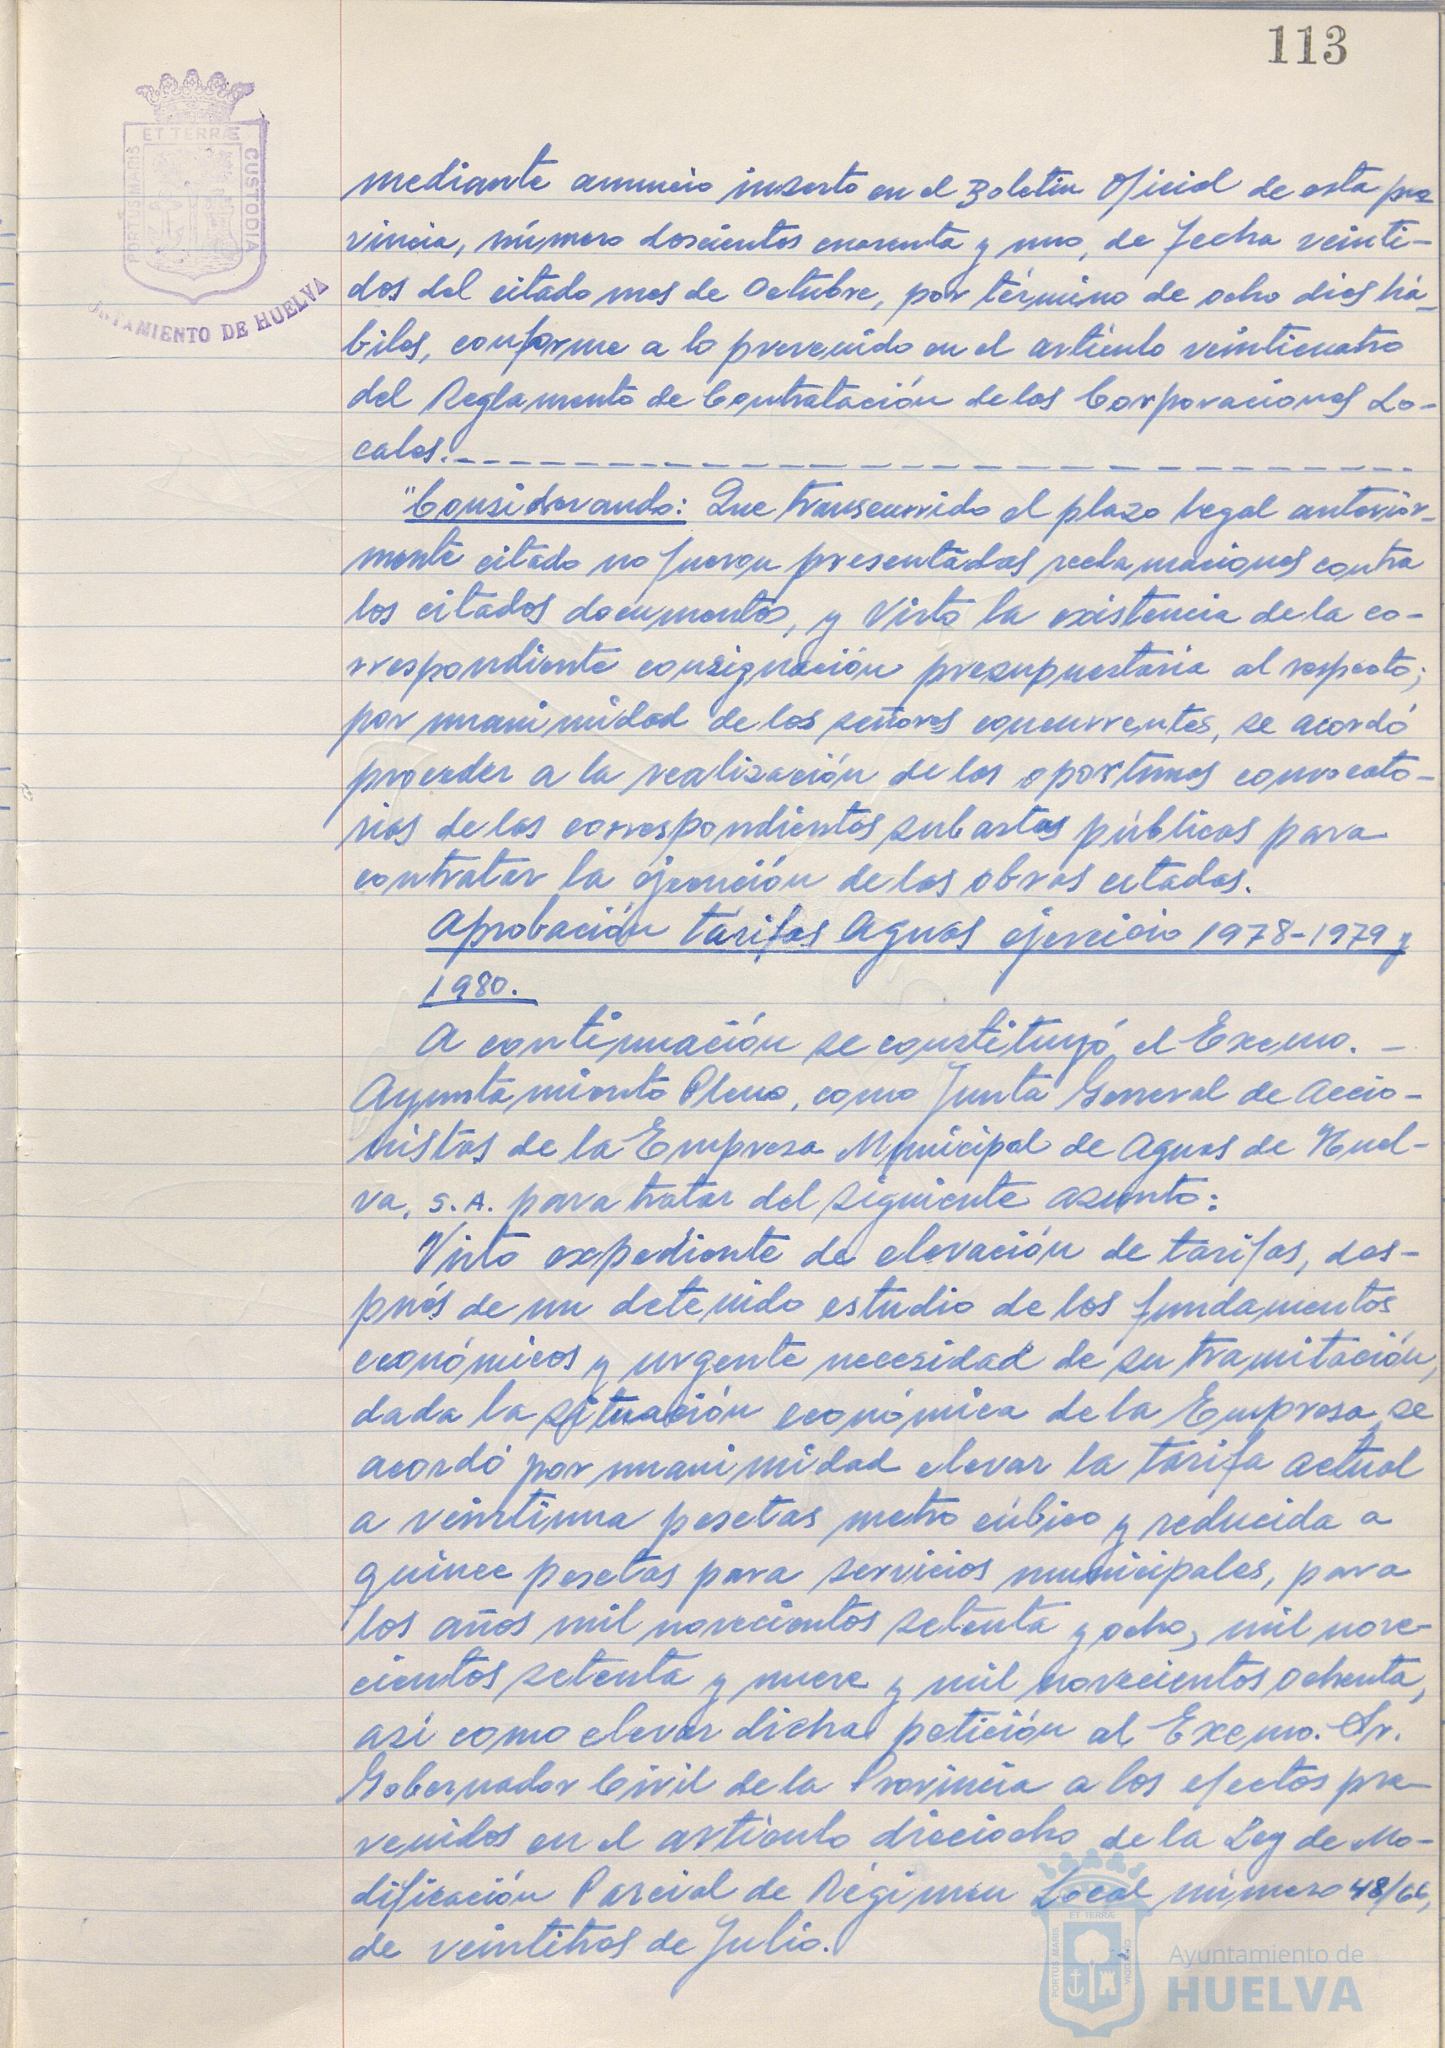 113
ET TERRÆ
PORTUS MARIS
CUSTODIA
AYUNTAMIENTO DE HUELVA
mediante anuncio inserto en el Boletin Oficial de esta pro
vincia, número doscientos cuarenta y uno, de fecha veinti-
dos del citado mes de Octubre, por término de ocho dias há-
biles, conforme a lo prevenido en el artículo veinticuatro
del Reglamento de Contratación de las Corporaciones Lo-
cales.
"Considerando: Que transcurrido el plazo legal anterior-
mente citado no fueron presentadas reclamaciones contra
los citados documentos, y Visto la existencia de la co-
rrespondiente consignación presupuestaria al respecto;
por unanimidad de los señores concurrentes, se acordó
proceder a la realización de las oportunas convocato-
rias de las correspondientes subastas públicas para
contratar la ejecución de las obras citadas.
Aprobación tarifas Aguas ejercicio 1978-1979 y
1980.
A continuación se constituyó el Excmo. -
Ayuntamiento Pleno, como Junta General de Accio-
nistas de la Empresa Municipal de Aguas de Huel-
va, S.A. para tratar del siguiente asunto:
Visto expediente de elevación de tarifas, des-
pués de un detenido estudio de los fundamentos
económicos y urgente necesidad de su tramitación,
dada la situación económica de la Empresa, se
acordó por unanimidad elevar la tarifa actual
a veintiuna pesetas metro cúbico y reducida a
quince pesetas para servicios municipales, para
los años mil novecientos setenta y ocho, mil nove-
cientos setenta y nueve y mil novecientos ochenta,
así como elevar dicha petición al Excmo. Sr.
Gobernador Civil de la Provincia a los efectos pre-
venidos en el artículo dieciocho de la Ley de Mo-
dificación Parcial de Régimen Local número 48/66,
de veintitres de Julio.
ET TERRÆ
PORTUS MARIS
CUSTODIA
Ayuntamiento de
HUELVA